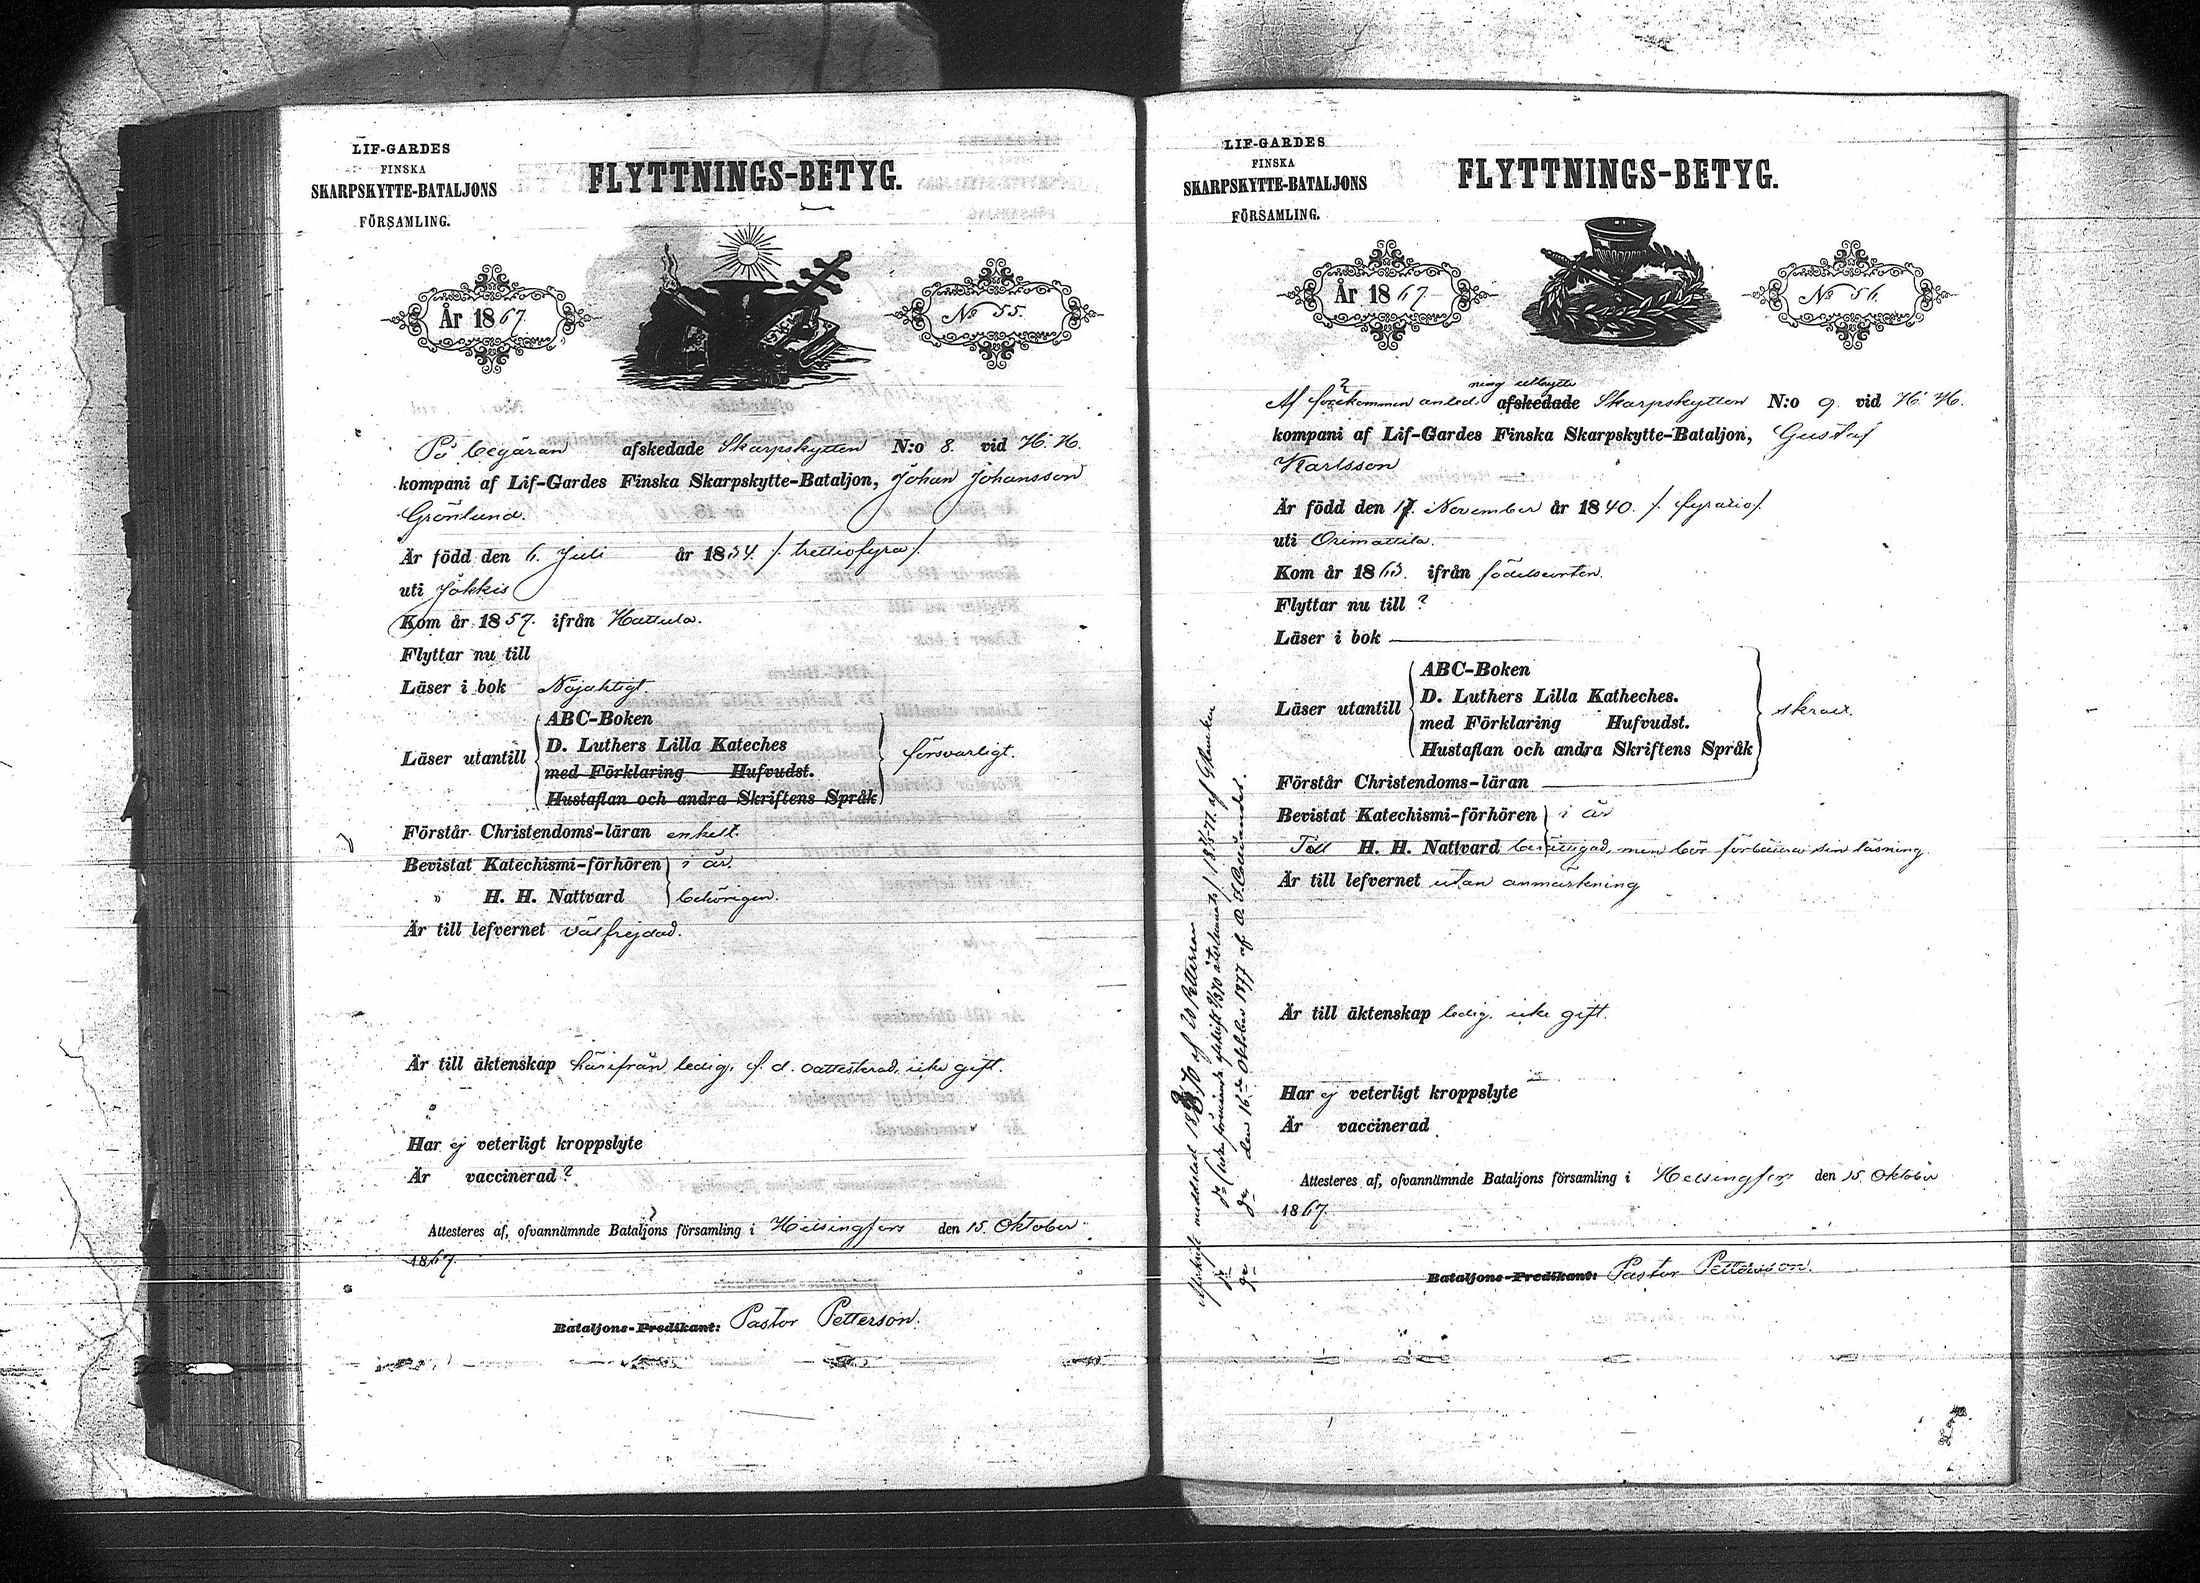 LIF-GARDES
FINSKA
SKARPSKYTTE-BATALJONS
FÖRSAMLING.
FLYTTNINGS-BETYG.
År 1867
No 55.
På begäran afskedade Skarpskytten N:o 8. vid H. H.
kompani af Lif-Gardes Finska Skarpskytte-Bataljon, Johan Johansson
Grönlund.
Är född den 6. Juli år 1834. /. trettiofyra /.
uti Jokkis
Kom år 1857. ifrån Hattula.
Flyttar nu till
Läser i bok Nöjaktigt.
Läser utantill
ABC-Boken
D. Luthers Lilla Kateches
med Förklaring Hufvudst.
Hustaflan och andra Skriftens Språk
försvarligt.
Förstår Christendoms-läran enkelt.
Bevistat Katechismi-förhören i år.
" H. H. Nattvard behörigen.
Är till lefvernet välfrejdad.
Är till äktenskap härifrån ledig, f. d. oattesterad, icke gift.
Har ej veterligt kroppslyte
Är vaccinerad?
Attesteres af, ofvannämnde Bataljons församling i Helsingfors den 15. Oktober
1867.
Bataljons-Predikant: Pastor Petterson.
LIF-GARDES
FINSKA
SKARPSKYTTE-BATALJONS
FÖRSAMLING.
FLYTTNINGS-BETYG.
År 1867
No 56.
ning utbytte
Af förekommen anled. afskedade Skarpskytten N:o 9. vid H. H.
kompani af Lif-Gardes Finska Skarpskytte-Bataljon, Gustaf
Karlsson
Är född den 17. November år 1840. /. fyratio /.
uti Orimattila.
Kom år 1863. ifrån födelseorten.
Flyttar nu till ?
Läser i bok
Läser utantill
ABC-Boken
D. Luthers Lilla Katheches.
med Förklaring Hufvudst.
Hustaflan och andra Skriftens Språk
skralt.
Förstår Christendoms-läran
Bevistat Katechismi-förhören i år
Till H. H. Nattvard berättigad, men bör förbättra sin läsning.
Är till lefvernet utan anmärkning
Är till äktenskap ledig, icke gift.
Har ej veterligt kroppslyte
Är vaccinerad
Attesteres af, ofvannämnde Bataljons församling i Helsingfors den 15. Oktober
1867.
Bataljons-Predikant: Pastor Petterson.
Afskrift meddelad af Petterson
den 16 Oktober 1877 af